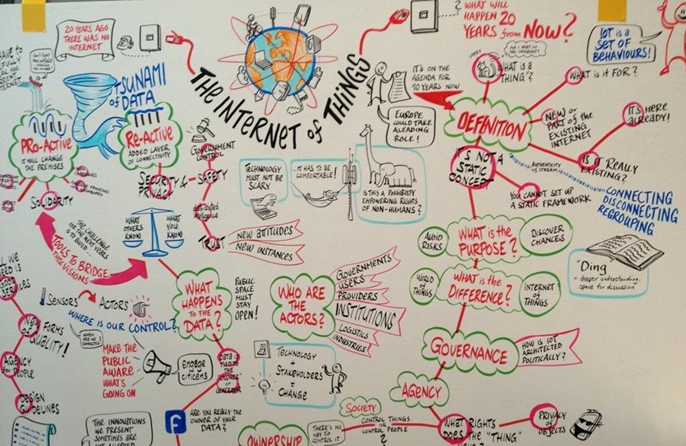 20 YEARS AGO
THERE WAS NO
INTERNET
THE INTERNET of THINGS
WHAT WILL
HAPPEN 20
YEARS from NOW?
IOT is a
SET OF
BEHAVIOURS!
TSUNAMI
of DATA
PRO-ACTIVE
IT WILL CHANGE
THE PREMISES
Re-ACTIVE
ADDED LAYER
of CONNECTIVITY
SOLIDARITY
GOVERNMENT
CONTROL
SECURITY SAFETY
PRIVACY
TRUST
NEW ATTITUDES
NEW INSTANCES
WHAT
OTHERS
KNOW
WHAT
YOU
KNOW
TOOLS TO BRIDGE
THE VISIONS
IT'S ON THE
AGENDA FOR
10 YEARS NOW
EUROPE
COULD TAKE
A LEADING
ROLE!
TECHNOLOGY
MUST NOT BE
SCARY
IT HAS TO BE
COMFORTABLE!
IS THIS A POSSIBILITY
EMPOWERING RIGHTS
OF NON-HUMANS?
DEFINITION
WHAT IS A
"THING"?
WHAT IS IT FOR?
NEW OR
PART OF THE
EXISTING
INTERNET
IT'S HERE
ALREADY!
IS IT REALLY
EXISTING?
IT'S NOT A
STATIC
CONCEPT
YOU CANNOT SET UP
A STATIC FRAMEWORK
CONNECTING
DISCONNECTING
REGROUPING
"Ding"
= deeper understanding,
space for discussion
AVOID
RISKS
WHAT IS THE
PURPOSE?
DISCOVER
CHANCES
WORLD
OF
THINGS
WHAT IS THE
DIFFERENCE?
INTERNET
OF
THINGS
GOVERNANCE
HOW IS IOT
ARCHITECTED
POLITICALLY?
AGENCY
SENSORS
ACTORS
WHERE IS OUR CONTROL?
WHAT
HAPPENS
TO THE
DATA?
PUBLIC
SPACE
MUST
STAY
OPEN!
WHO ARE
THE
ACTORS?
GOVERNMENTS
USERS
PROVIDERS
INSTITUTIONS
LOGISTICS
INDUSTRIES
TECHNOLOGY
STAKEHOLDERS
=
CHANGE
MAKE THE
PUBLIC
AWARE
WHAT'S
GOING ON
ENGAGE
CITIZENS
QUALITY!
AGENCY
PEOPLE
DESIGN
GUIDELINES
THE INNOVATIONS
WE PRESENT
SOMETIMES ARE
f
ARE YOU REALLY THE
OWNER OF YOUR
DATA?
OWNERSHIP
THERE'S NO
KEY TO
CONTROL IT
SOCIETY
CONTROL THINGS
OR
CONTROL PEOPLE
?
WHAT RIGHTS
DOES THE "THING"
PRIVACY
OF
OBJECTS